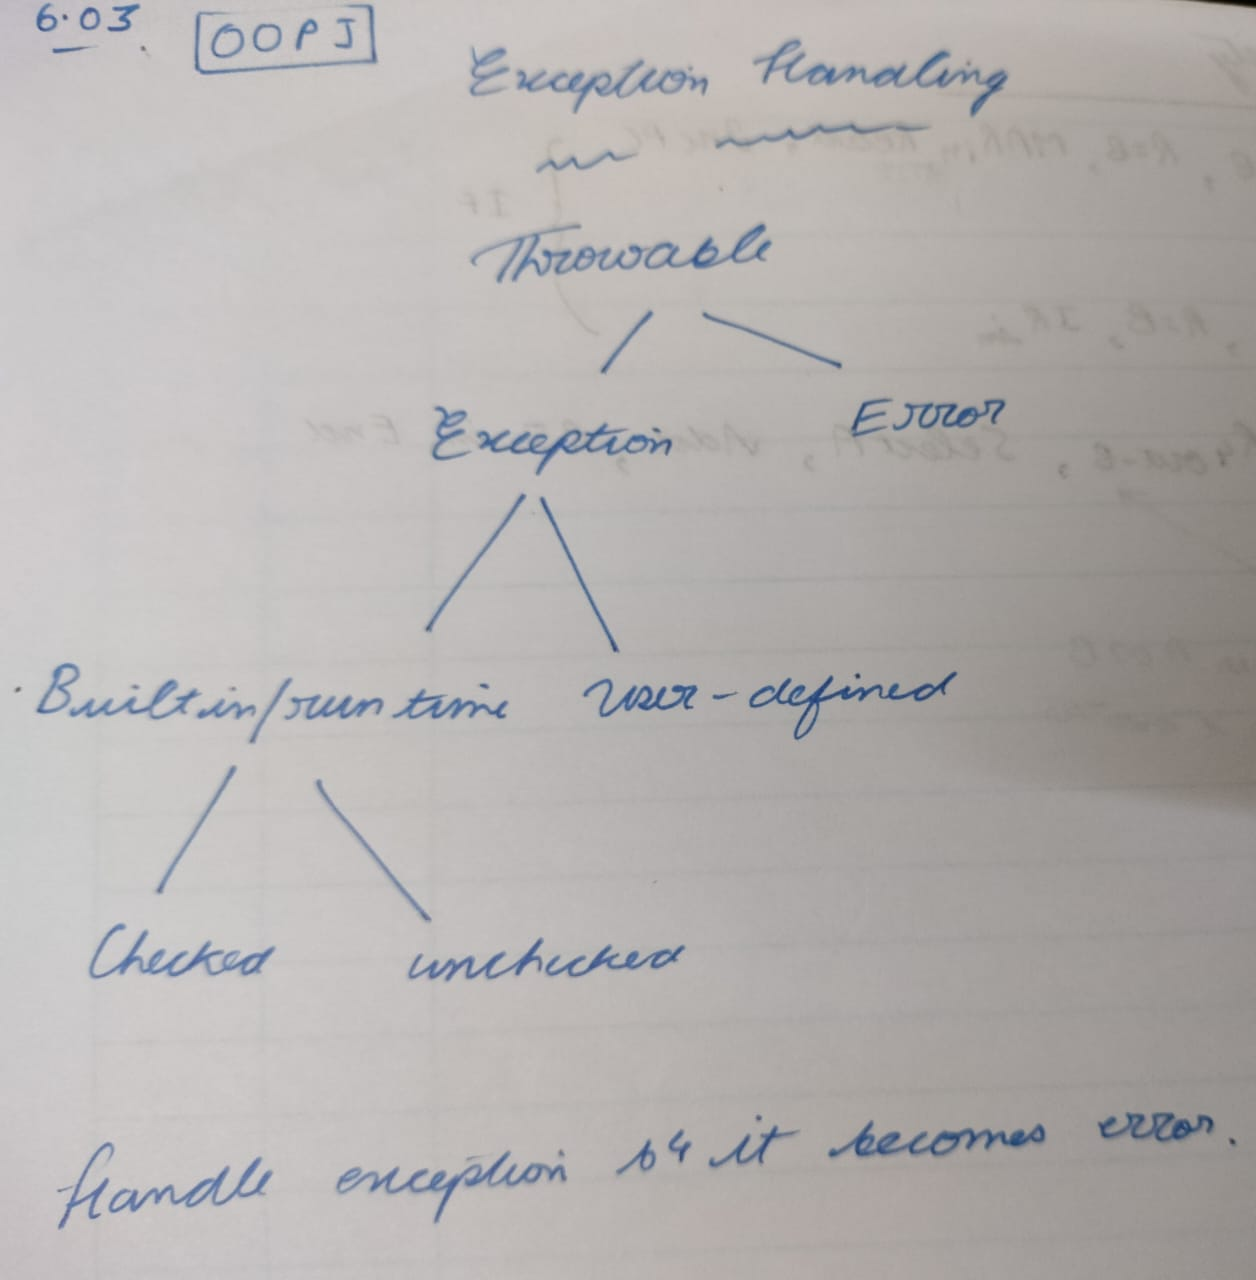 6.03. OOPJ
Exception Handling
Throwable
Exception Error
Builtin/run time User-defined
Checked unchecked
Handle exception b4 it becomes error.